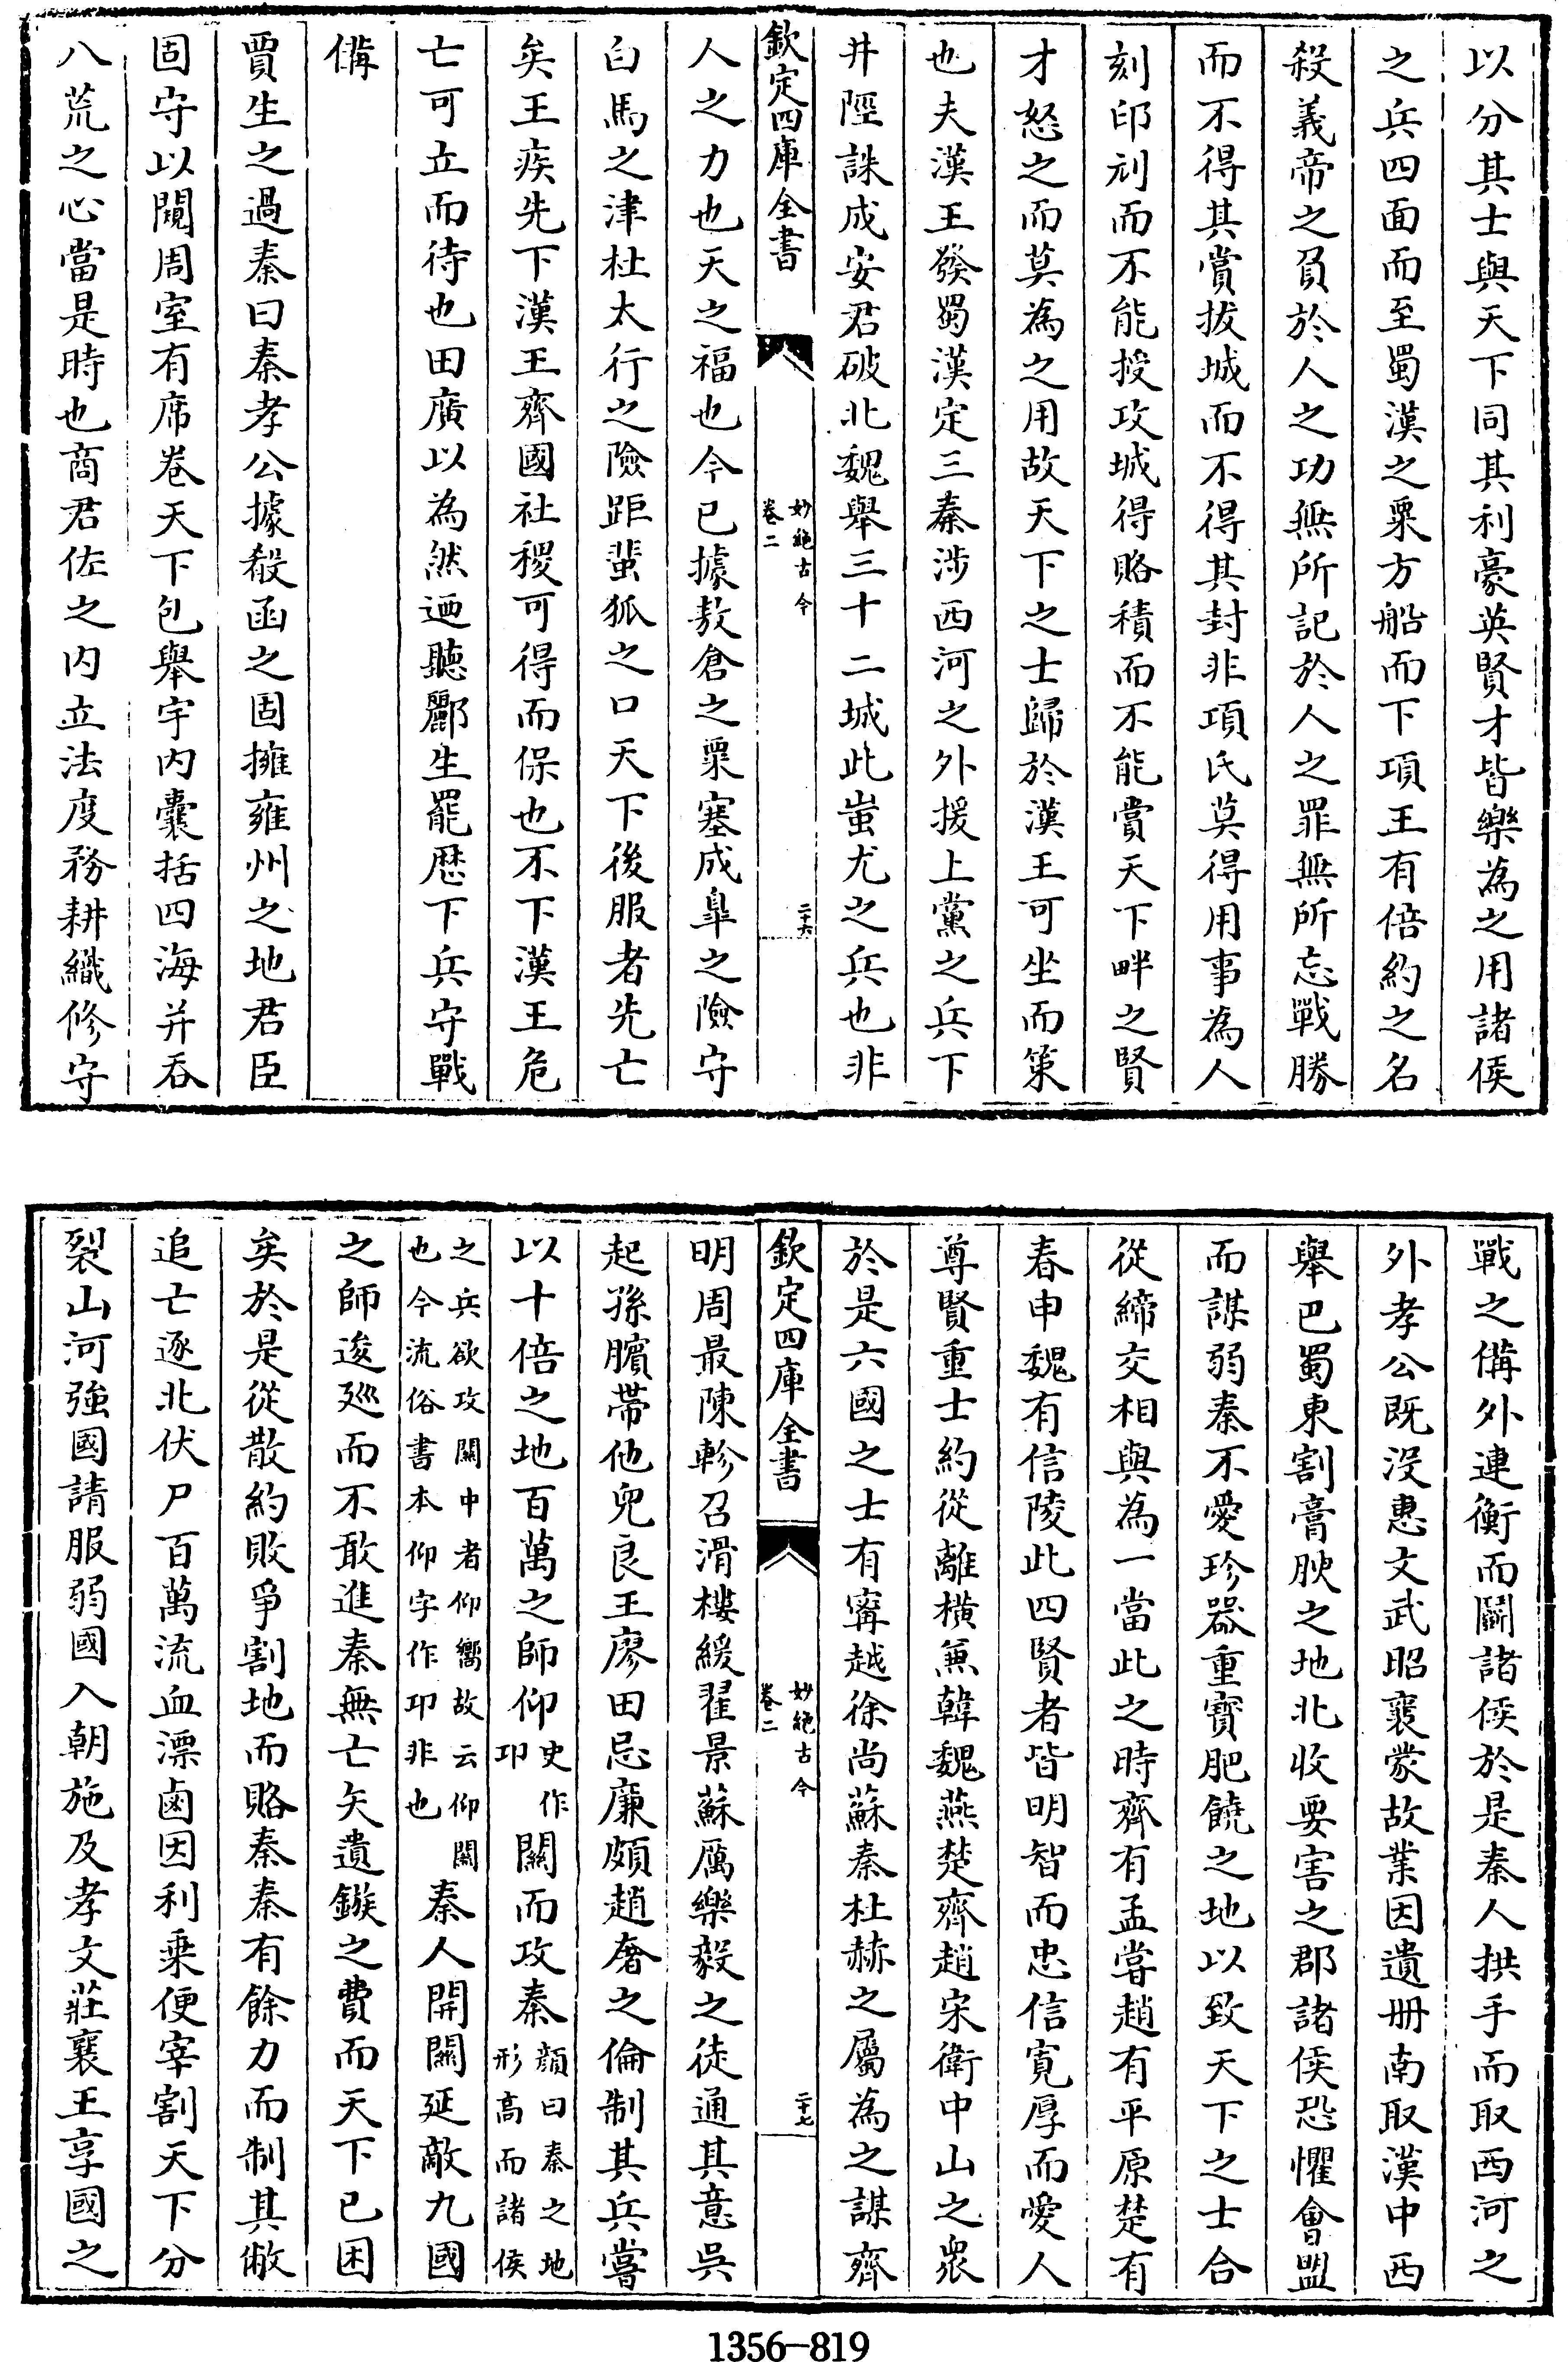 以分其士與天下同其利豪英賢才皆樂為之用諸侯
之兵四面而至蜀漢之粟方船而下項王有倍約之名
殺義帝之負於人之功無所記於人之罪無所忘戰勝
而不得其賞拔城而不得其封非項氏莫得用事為人
刻印刓而不能授攻城得賂積而不能賞天下畔之賢
才怒之而莫為之用故天下之士歸於漢王可坐而策
也夫漢王發蜀漢定三秦涉西河之外援上黨之兵下
井陘誅成安君破北魏舉三十二城此蚩尤之兵也非
欽定四庫全書
妙絶古今
卷二
二十六
人之力也天之福也今已據敖倉之粟塞成臯之險守
白馬之津杜太行之險距蜚狐之口天下後服者先亡
矣王疾先下漢王齊國社稷可得而保也不下漢王危
亡可立而待也田廣以為然迺聽酈生罷歴下兵守戰
備
賈生之過秦曰秦孝公據殽函之固擁雍州之地君臣
固守以闚周室有席卷天下包舉宇内囊括四海并吞
八荒之心當是時也商君佐之内立法度務耕織修守
戰之備外連衡而鬬諸侯於是秦人拱手而取西河之
外孝公既没惠文武昭襄蒙故業因遺册南取漢中西
舉巴蜀東割膏腴之地北收要害之郡諸侯恐懼會盟
而謀弱秦不愛珍器重寳肥饒之地以致天下之士合
從締交相與為一當此之時齊有孟嘗趙有平原楚有
春申魏有信陵此四賢者皆明智而忠信寛厚而愛人
尊賢重士約從離横兼韓魏燕楚齊趙宋衛中山之衆
於是六國之士有寗越徐尚蘇秦杜赫之屬為之謀齊
欽定四庫全書
妙絶古今
卷二
二十七
明周最陳軫召滑樓緩翟景蘇厲樂毅之徒通其意吳
起孫臏帶他兒良王廖田忌廉頗趙奢之倫制其兵嘗
以十倍之地百萬之師仰史作卬關而攻秦顔曰秦之地形高而諸侯
之兵欲攻關中者仰嚮故云仰關也今流俗書本仰字作卬非也秦人開關延敵九國
之師逡廵而不敢進秦無亡矢遺鏃之費而天下已困
矣於是從散約敗爭割地而賂秦秦有餘力而制其敝
追亡逐北伏尸百萬流血漂鹵因利乗便宰割天下分
裂山河強國請服弱國入朝施及孝文莊襄王享國之
1356-819